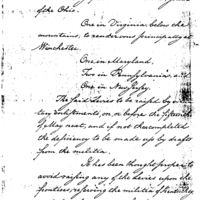 of the Ohio.
One in Virginia below the
mountains, to rendezvous principally at
Winchester.
One in Maryland.
Two in Pennsylvania and
One in New Jersey.
The said Levies to be raised by
tary enlistments, on, or before the fifteenth
of May next, and if not then completed
the deficiency to be made up by drafts
from the militia.
It has been thought proper to
avoid raising any of the levies upon the
frontiers, reserving the militia of Kentucky